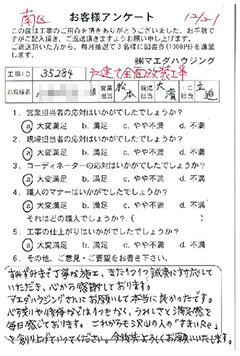 南区
12/21
お客様アンケート
この度は工事のご用命を頂きありがとうございました。お手数で
すがご記入頂き、ご返送頂きますようお願い申し上げます。
ご返送頂いた方から、毎月抽選で3名様に図書券(1000円)を進呈
します。
㈱マエダハウジング
工事ID 35284 戸建て全面改装工事
お客様名 様 営業担当 松本 現場担当 大濱
1. 営業担当者の応対はいかがでしたでしょうか?
a 大変満足 b. 満足 c. やや不満 d. 不満
2. 現場担当者の応対はいかがでしたでしょうか?
a 大変満足 b. 満足 c. やや不満 d. 不満
3. コーディネーターの応対はいかがでしたでしょうか?
a 大変満足 b. 満足 c. やや不満 d. 不満
4. 職人のマナーはいかがでしたでしょうか?
a 大変満足 b. 満足 c. やや不満 d. 不満
それはどの職人でしょうか( )
5. 工事の仕上がりはいかがでしたでしょうか?
a 大変満足 b. 満足 c. やや不満 d. 不満
6. その他、ご意見・ご要望をお書き下さい。
すみずみまで丁寧な施工、きたうちつ誠実に対応して
いただき、心から感謝しております。
マエダハウジングさんにお願いして本当に良かったです。
心残りや後悔などは1つもなく、うれしさと満足感で
毎日感じております。これからも沢山の人の"すまいRe"
を創り上げていってください。今後共よろしくお願いいたします。